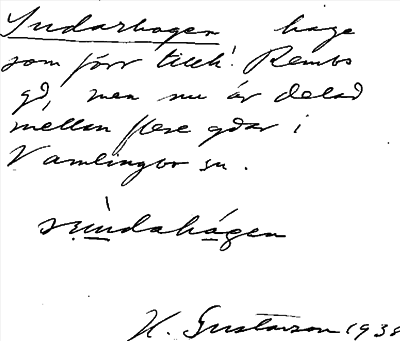 Sudarhagen hage
som förr tillh. Rembs
gd, men nu är delad
mellan flere gdar i
Vamlingbo sn.
sùndahágen
H. Gustavson 1938